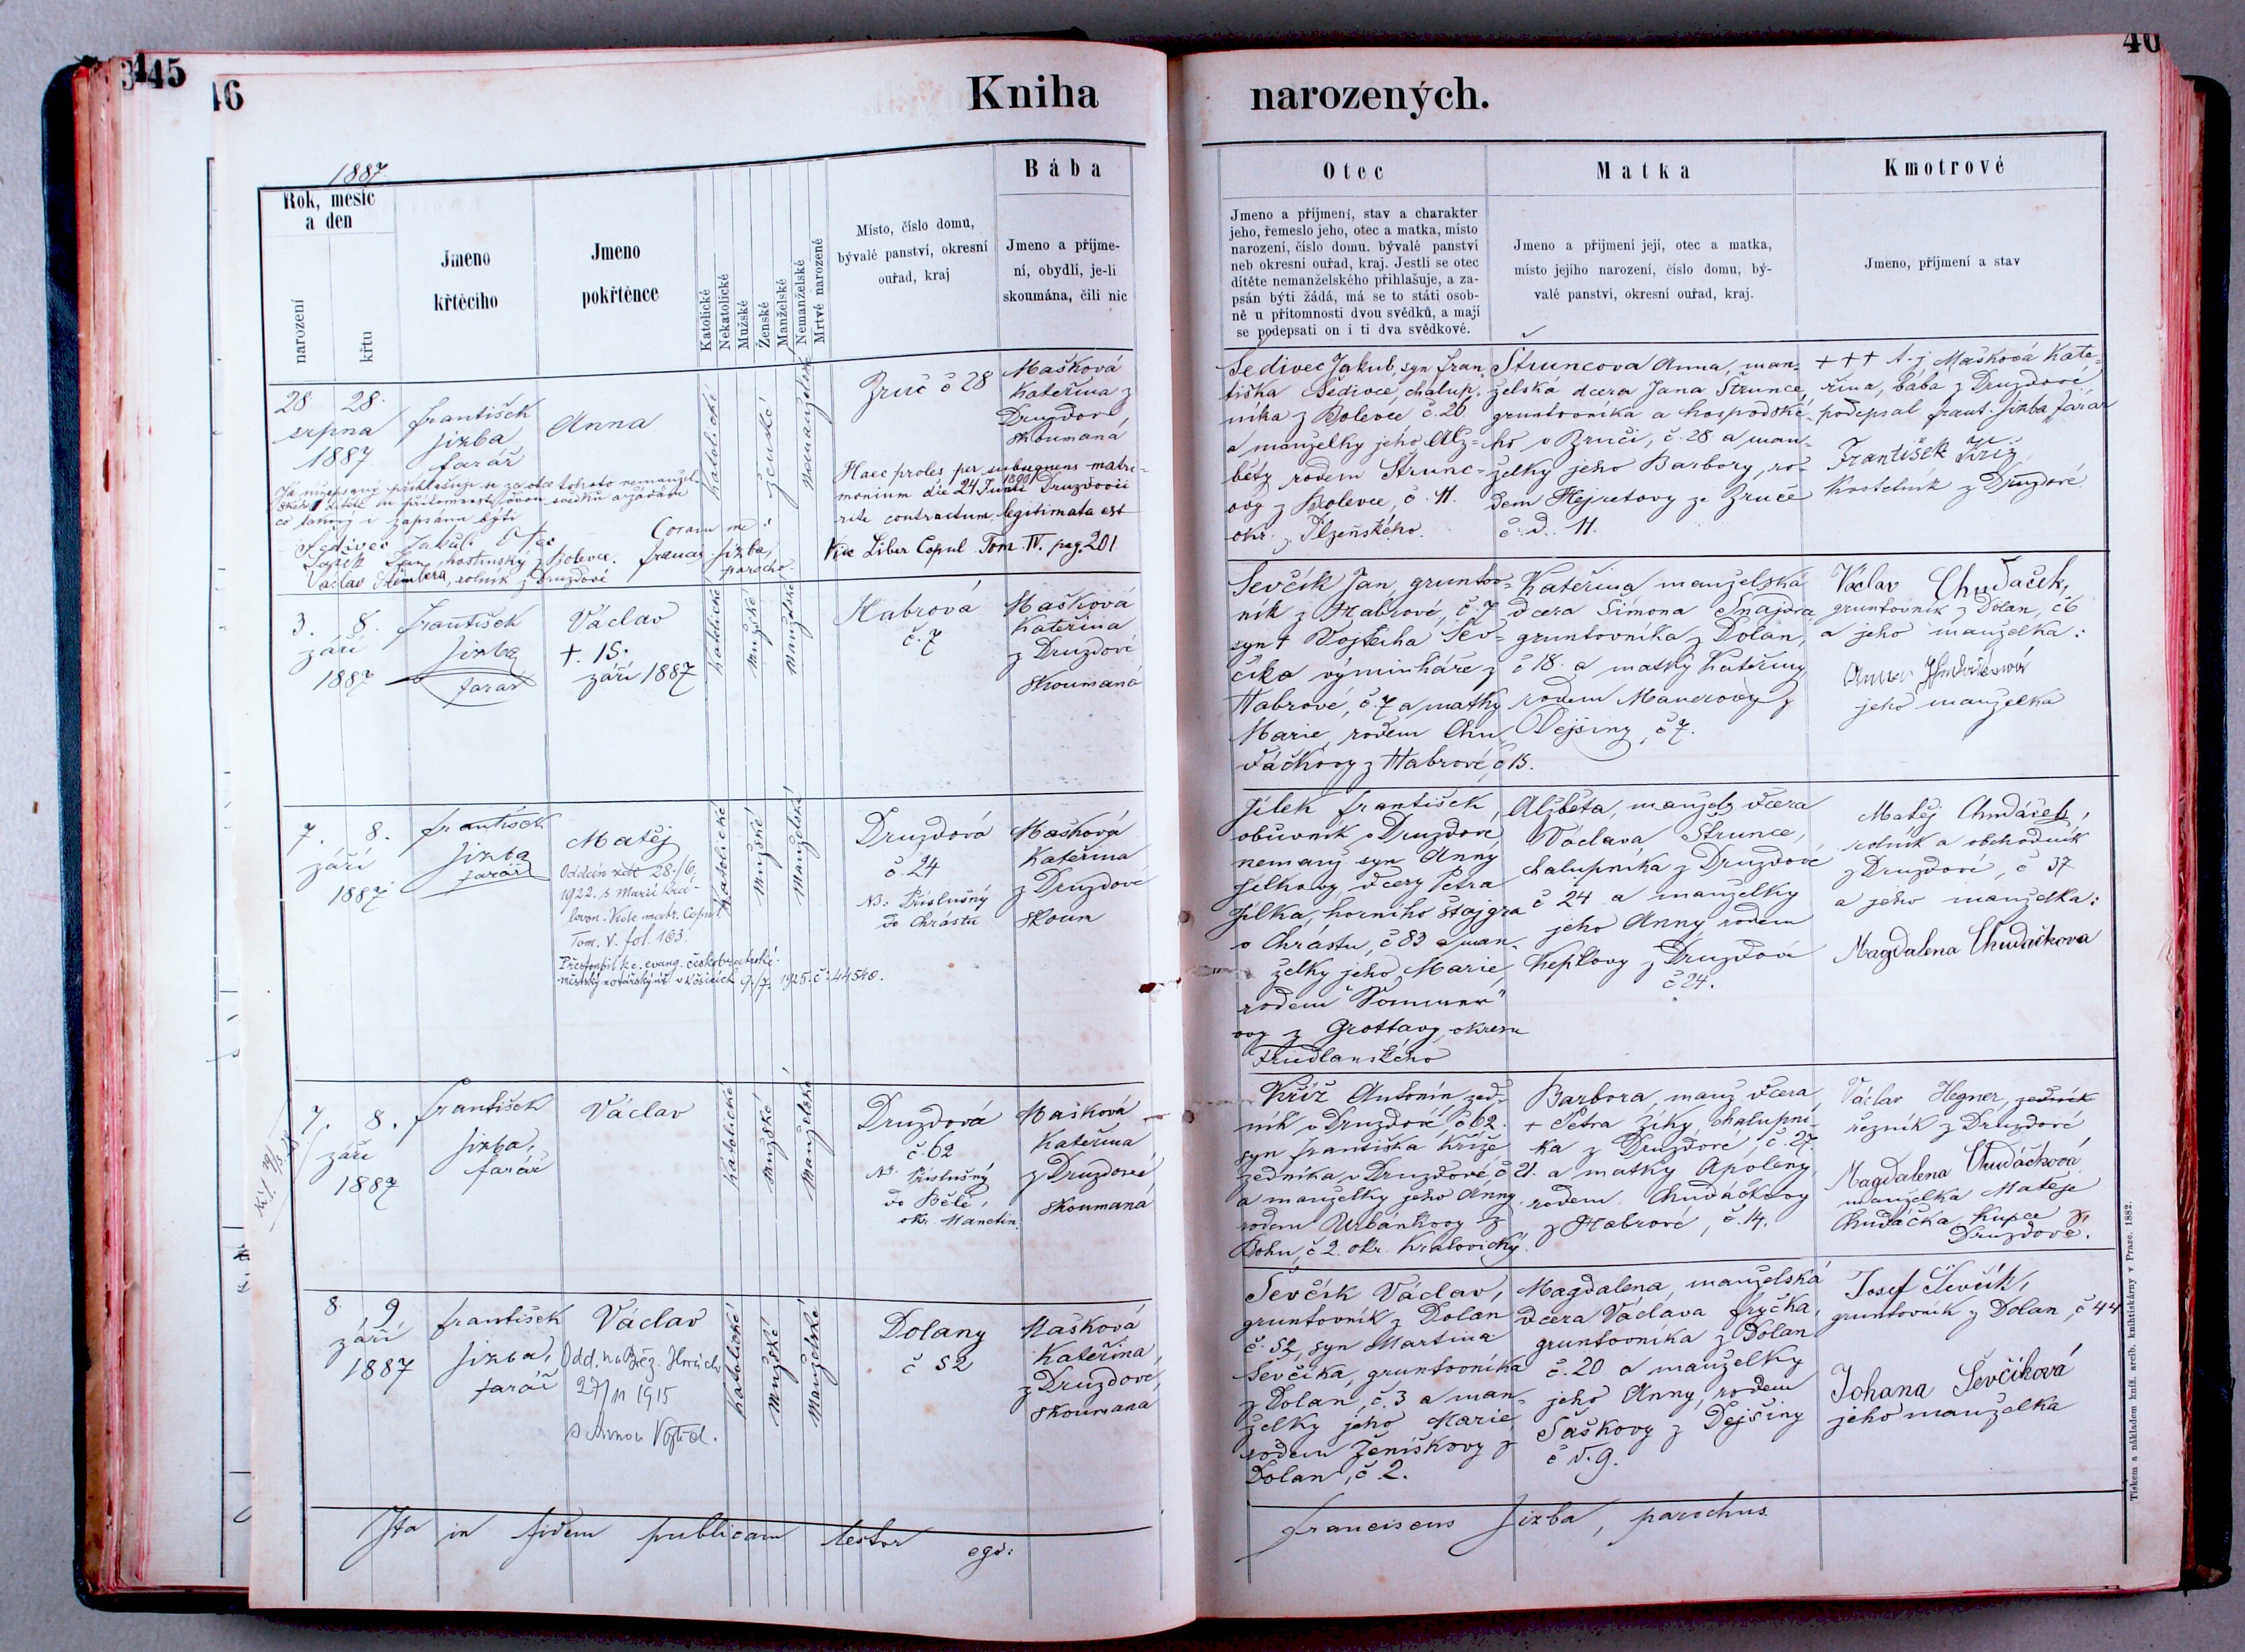 45
46
Kniha
narozených.
46
1887.
Rok, měsíc
a den
narození
křtu
Jmeno
křtěcího
Jmeno
pokřtěnce
Katolické
Nekatolické
Mužské
Ženské
Manželské
Nemanželské
Mrtvě narozené
Místo, číslo domu,
bývalé panství, okresní
ouřad, kraj
Bába
Jmeno a příjme-
ní, obydlí, je-li
skoumána, čili nic
Otec
Jmeno a příjmení, stav a charakter
jeho, řemeslo jeho, otec a matka, místo
narození, číslo domu. bývalé panství
neb okresní ouřad, kraj. Jestli se otec
dítěte nemanželského přihlašuje, a za-
psán býti žádá, má se to státi osob-
ně u přítomnosti dvou svědků, a mají
se podepsati on i ti dva svědkové.
Matka
Jmeno a příjmení její, otec a matka,
místo jejího narození, číslo domu, bý-
valé panství, okresní ouřad, kraj.
Kmotrové
Jmeno, příjmení a stav
28. 28.
srpna
1887
František
Jizba
farář
Anna
katolické
ženské
nemanželské
Zruč č 28
Mašková
Kateřina z
Druzdové
skoumaná
Já nížepsaný přihlašuji se za otce tohoto nemanžel-
ského dítěte u přítomnosti dvou svědků a žádám
co takový i zapsánu býti
Šedivec Jakub. Otec
Jan, hostinský z Bolevce.
Václav Štembera, rolník z Druzdové
Coram me:
Franc. Jizba,
parocho.
Haec proles per subsequens matri-
monium die 24 Junii 1890 Druzdovii
rite contractum, legitimata est
Vide Liber Copul. Tom. IV. pag. 201.
Šedivec Jakub, syn Fran-
tiška Šedivce, chalup-
níka z Bolevce č. 20
a manželky jeho Alž-
běty rodem Štrunc-
ovy z Bolevce, č. 11.
okr. Plzeňského.
Štruncova Anna, man-
želská dcera Jana Štrunce,
gruntovníka a hospodské-
ho v Zruči, č. 28 a man-
želky jeho Barbory, ro-
dem Hejretovy ze Zruče
č. d. 11.
+ + + t. j. Mašková Kate-
řina, bába z Druzdové,
podepsal Frant. Jizba farář
František Kříž
Kostelník z Druzdové
3. 8.
září
1887
František
Jizba
farář
Václav
+. 15.
září 1887
katolické
mužské
manželské
Habrová
č. 7
Mašková
Kateřina
z Druzdové
skoumaná
Ševčík Jan, gruntov-
ník z Habrové, č. 7
syn + Vojtěcha Šev-
číka výminkáře z
Habrové, č. 7 a matky
Marie, rodem Chu-
dáčkovy z Habrové, č 15.
Kateřina manželská
dcera Šimona Šnajdra,
gruntovníka z Dolan,
č 18. a matky Kateřiny
rodem Mauerovy z
Dejšiny, č 7.
Václav Chudáček,
gruntovník z Dolan, č 6
a jeho manželka:
Anna Chudáčková
jeho manželka
7. 8.
září
1887
František
Jizba
farář
Matěj
Oddán 28./6.
1922. s Marií Krá-
lovou. Vide matr. Copul.
Tom. V. fol. 163.
Přestoupil k c. evang. českobratrské.
městský notářský úř. v Košicích 9./7. 1925. č: 44540.
katolické
mužské
manželské
Druzdová
č. 24
NB: Příslušný
do Chrástu
Mašková
Kateřina
z Druzdové
skoum
Jílek František,
obuvník v Druzdové
nemanž syn Anny
Jílkovy, dcery Petra
Jílka, horního štajgra
v Chrástu, č 83 a man-
želky jeho Marie,
rodem "Sommer"
ovy z Grottavy, okresu
Friedlanského
Alžběta, manžels dcera
Václava Štrunce,
chalupníka z Druzdové
č 24 a manželky
jeho Anny rodem
Keplovy z Druzdové
č 24.
Matěj Chudáček,
rolník a obchodník
z Druzdové, č 37
a jeho manželka:
Magdalena Chudáčkova
7. 8.
září
1887
František
Jizba,
farář
Václav
katolické
mužské
manželské
Druzdová
č. 62
NB. Příslušný
do Bělé,
okr. Manetín.
Mašková
Kateřina
z Druzdové
skoumaná
Kříž Antonín, zed-
ník v Druzdové, č 62.
syn Františka Kříže
zedníka v Druzdové, č 21.
a manželky jeho Anny
rodem Urbánkovy z
Bohu, č 2. okr. Kralovický.
Barbora, manž dcera
+ Petra Ziky, chalupní-
ka z Druzdové, č. 27.
a matky Apoleny
rodem Chudáčkovy
z Habrové, č. 14.
Václav Hegner, zedník
řezník z Druzdové
Magdalena Chudáčková
manželka Matěje
Chudáčka, kupce z
Druzdové.
8. 9
září
1887
František
Jizba,
farář
Václav
Odd. na Břez. Horách
27/11 1915
katolické
mužské
manželské
Dolany
č 52
Mašková
Kateřina,
z Druzdové,
skoumana
Ševčík Václav,
gruntovník z Dolan
č. 52, syn Martina
Ševčíka, gruntovníka
z Dolan, č. 3 a man-
želky jeho Marie
rodem Ženíškovy z
Dolan, č 2.
Magdalena, manželská
dcera Václava Fryčka,
gruntovníka z Dolan
č. 20 a manželky
jeho Anny, rodem
Saškovy z Dejšiny
č d. 9.
Josef Ševčík,
gruntovník z Dolan, č 44
Johana Ševčíková
jeho manželka
Ita in fidem publicam testor ego:
Franciscus Jizba, parochus.
Tiskem a nákladem kníž. arcib. knihtiskárny v Praze. 1882.